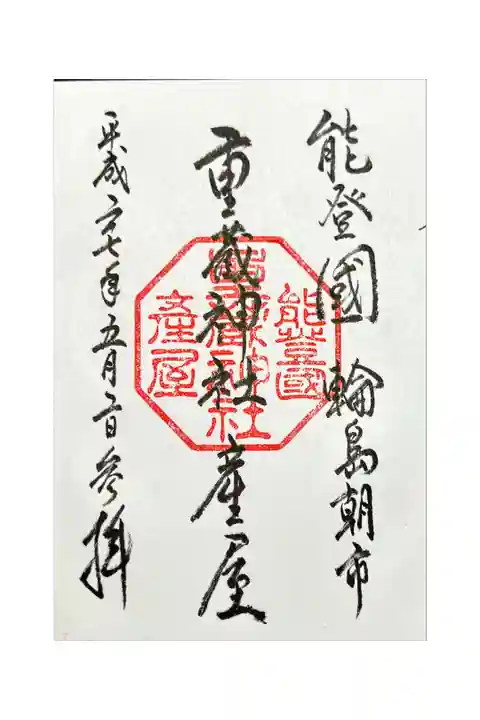 能登國 輪島朝市
重蔵神社産屋
平成二七年五月二日参拝
能登國
重蔵神社
産屋